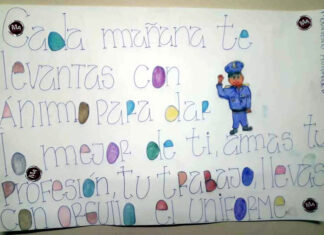 Cada mañana te
levantas con
Ánimo para dar
lo mejor de ti, amas tu
profesión, tu trabajo, llevas
con orgullo el uniforme